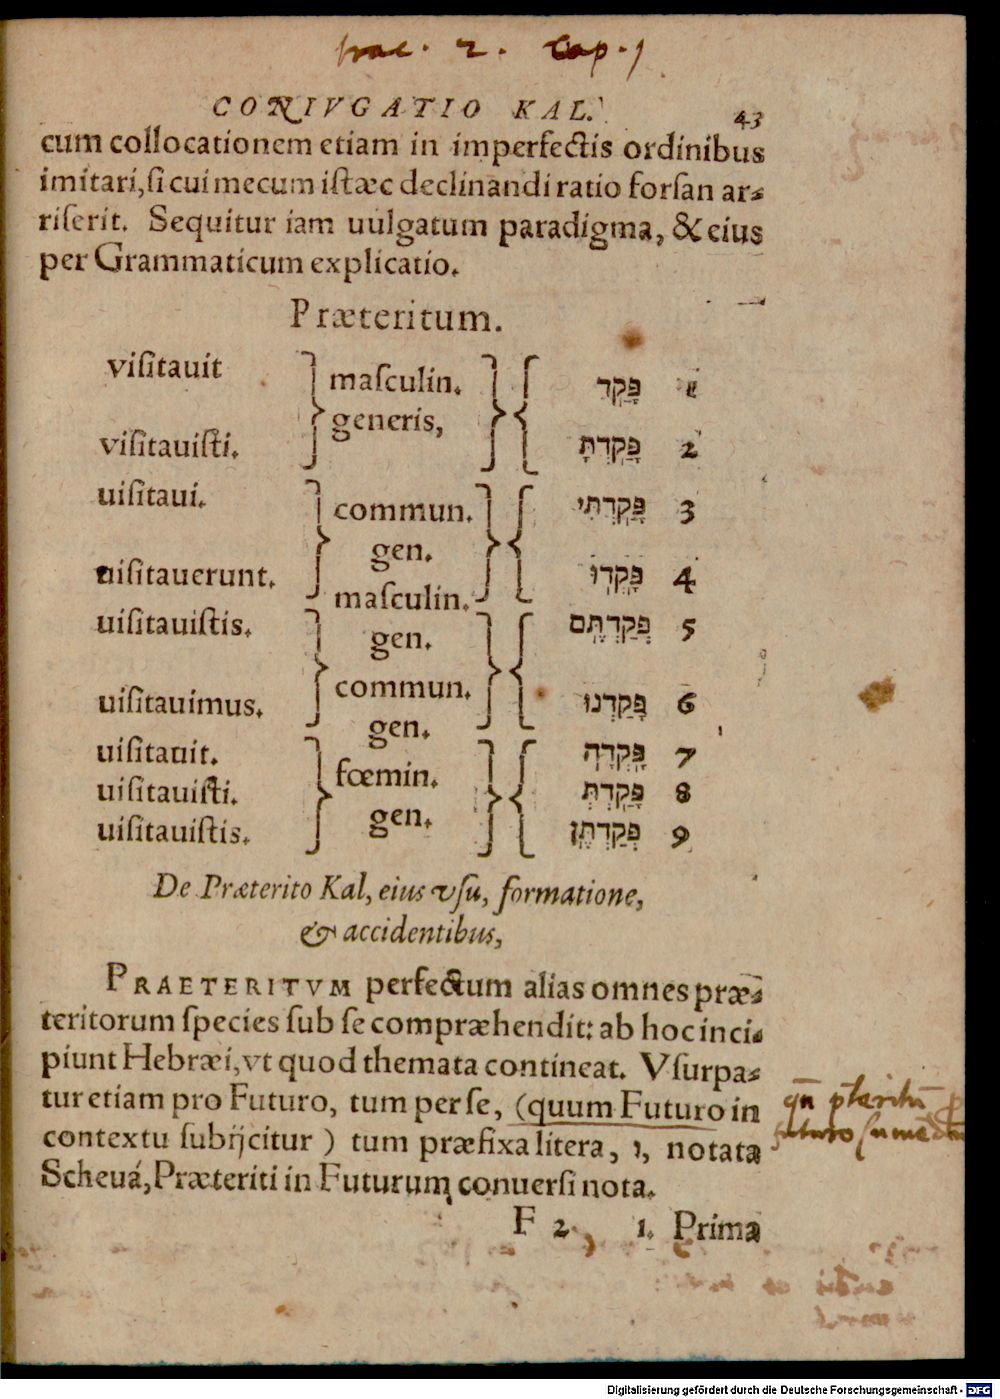 trac. 2. Cap. 1
CONIVGATIO KAL. 43
cum collocationem etiam in imperfectis ordinibus
imitari, si cui mecum istæc declinandi ratio forsan ar-
riserit. Sequitur iam uulgatum paradigma, & eius
per Grammaticum explicatio.
Præteritum.
visitauit } masculin. } { פָּקַד 1
visitauisti. } generis, } { פָּקַדְתָּ 2
uisitaui. } commun. } { פָּקַדְתִּי 3
uisitauerunt. } gen. } { פָּקְדוּ 4
uisitauistis. } masculin. gen. } { פְּקַדְתֶּם 5
uisitauimus. } commun. gen. } { פָּקַדְנוּ 6
uisitauit. } fœmin. } { פָּקְדָה 7
uisitauisti. } { פָּקַדְתְּ 8
uisitauistis. } gen. } { פְּקַדְתֶּן 9
De Præterito Kal, eius vsu, formatione,
& accidentibus,
PRAETERITVM perfectum alias omnes præ-
teritorum species sub se compræhendit: ab hoc inci-
piunt Hebræi, vt quod themata contineat. Vsurpa-
tur etiam pro Futuro, tum per se, (quum Futuro in
contextu subijcitur) tum præfixa litera, ו, notata
Scheuá, Præteriti in Futurum conuersi nota.
F 2 1. Prima
qn pteritu p
futuro
Digitalisierung gefördert durch die Deutsche Forschungsgemeinschaft - DFG